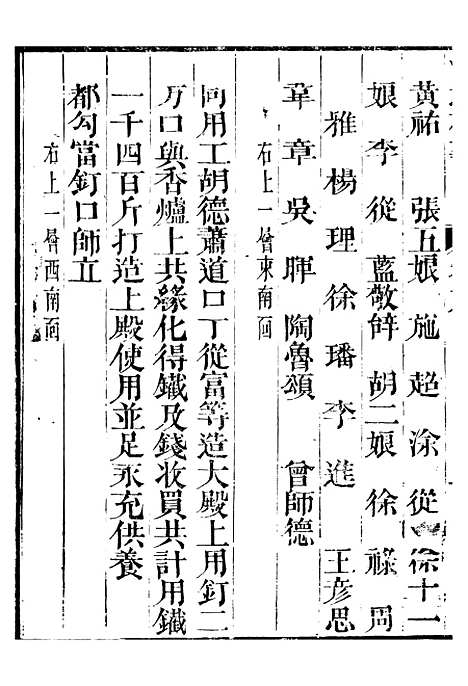 黃祐 張五娘 施超 涂從 徐十一
娘 李從 藍敬辝 胡二娘 徐祿 周
雅 楊理 徐璠 李進 王彥思
韋章 吳暉 陶魯頌 曾師德
右上一層東南面
同用工胡德蕭道口丁從富等造大殿上用釘二
万口與香爐上共緣化得鐵及錢收買共計用鐵
一千四百斤打造上殿使用並足永充供養
都勾當釘口師立
右上一層西南面